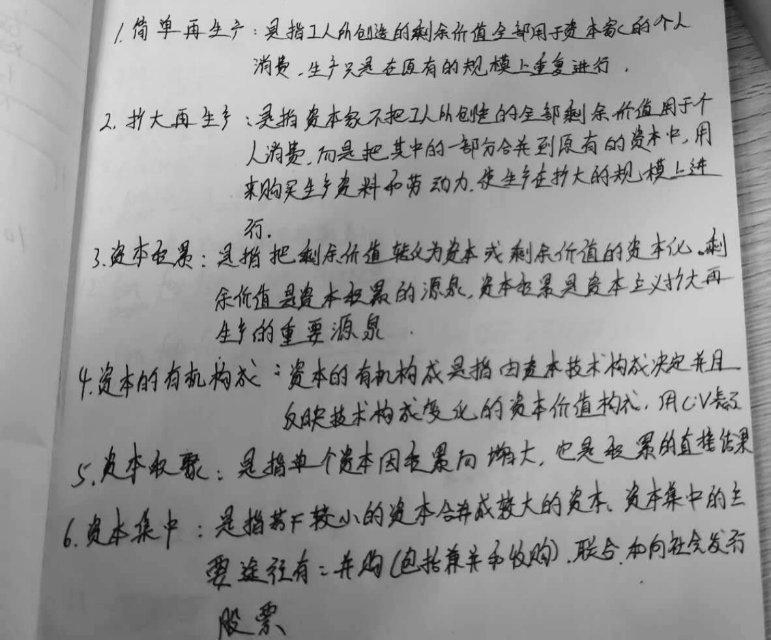 1. 简单再生产：是指工人所创造的剩余价值全部用于资本家的个人
消费，生产只是在原有的规模上重复进行．
2. 扩大再生产：是指资本家不把工人所创造的全部剩余价值用于个
人消费，而是把其中的一部分合并到原有的资本中，用
来购买生产资料和劳动力，使生产在扩大的规模上进
行．
3. 资本积累：是指把剩余价值转化为资本或剩余价值的资本化．剩
余价值是资本积累的源泉，资本积累是资本主义扩大再
生产的重要源泉．
4. 资本的有机构成：资本的有机构成是指由资本技术构成决定并且
反映技术构成变化的资本价值构成，用C:V表示
5. 资本积聚：是指单个资本因积累而增大，也是积累的直接结果
6. 资本集中：是指若干较小的资本合并成较大的资本、资本集中的主
要途径有：并购(包括兼并和收购)、联合、和向社会发行
股票